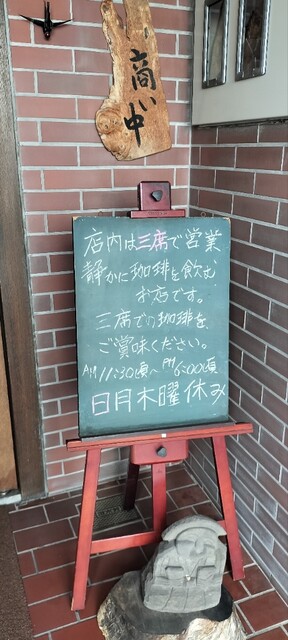 商い中
店内は三席で営業
静かに珈琲を飲む
お店です。
三席での珈琲を、
ご賞味ください。
AM11:30頃〜PM6:00頃
日月木曜休み